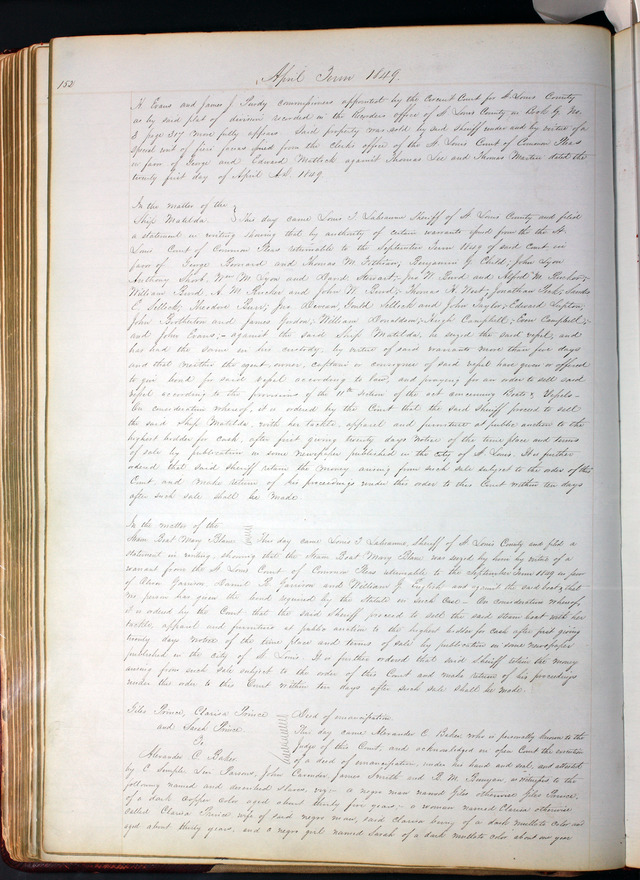 152
April Term 1849.
H. Evans and James J. Purdy commissioners appointed by the Circuit Court for St. Louis County
as by said plat of division recorded in the Recorders office of St Louis County in Book No.
3 page 507 more fully appears. Said property was sold by said Sheriff under and by virtue of a
special writ of fieri facias issued from the clerks office of the St. Louis Court of Common Pleas
in favor of George and Edward Matlack against Thomas Lee and Thomas Martin dated the
twenty first day of April A.D. 1849
In the matter of the
Ship Matilda. } This day came Louis T. Labeaume Sheriff of St Louis County and filed
a statement in writing showing that by authority of certain warrants issued from the St.
Louis Court of Common Pleas returnable to the September Term 1849 of said Court, in
favor of George Bernard and Thomas M. Benjamin G. Child; John Lyon
Anthony Wm M. Lyon and David Stewart; Jno W. Burd and Alfred M. Rucker;
William Burd, A. M. Rucker and John W. Burd; Thomas H. West; Jonathan
E. Selleck; Theodore Burr; Jno Devoan, Gould Selleck and John Taylor; Edward Lupton;
John Brotherton and James Gordon; William Donaldson; Hugh Campbell; Campbell;
and John Evans; against the said Ship Matilda, he seized the said vessel, and
has had the same in his custody, by virtue of said warrants more than five days
and that neither the agent, owner, captain or consignee of said vessel have given or offered
to give bond for said vessel according to law, and praying for an order to sell said
vessel according to the provisions of the 11th section of the act concerning Boats & Vessels.
On consideration whereof, it is ordered by the Court that the said Sheriff proceed to sell
the said Ship Matilda, with her tackle, apparel and furniture at public auction to the
highest bidder for cash, after first giving twenty days notice of the time place and terms
of sale by publication in some newspaper published in the city of St. Louis. It is further
ordered that said sheriff return the money arising from such sale subject to the order of this
Court and make return of his proceedings under this order to this Court within ten days
after such sale shall be made
In the matter of the
Steam Boat Mary Blane } This day came Louis T. Labeaume, Sheriff of St Louis County and filed a
statement in writing, showing that the Steam Boat Mary Blane was seized by him by virtue of a
warrant from the St. Louis Court of Common Pleas returnable to the September Term 1849 in favor
of Oliver Garrison, Daniel R. Garrison and William J. English and against the said boat & that
no person has given the bond required by the Statute in such case. On consideration whereof,
it is ordered by the Court that the said Sheriff proceed to sell the said steam boat with her
tackle, apparel and furniture at public auction to the highest bidder for cash after first giving
twenty days notice of the time place and terms of sale by publication in some newspaper
published in the city of St. Louis. It is further ordered that said Sheriff retain the money
arising from such sale subject to the order of this Court and make return of his proceedings
under this order to this Court within ten days after such sale shall be made.
Giles Prince, Clarisa Prince } Deed of emancipation
and Sarah Prince. This day came Alexander C. Baker who is personally known to the
To Judge of this Court, and acknowledged in open Court the execution
Alexander C. Baker of a deed of emancipation, under his hand and seal, and attested
by C. Semple, Lin John Cavender, James Smith and R. M. Runyan, witnesses to the
following named and described slaves, viz:- a negro man named Giles otherwise Giles Prince,
of a dark copper color aged about thirty five years; a woman named Clarisa otherwise
called Clarisa Prince wife of said negro man, said Clarisa being of a dark mulatto color and
aged about thirty years, and a negro girl named Sarah of a dark mulatto color about one year